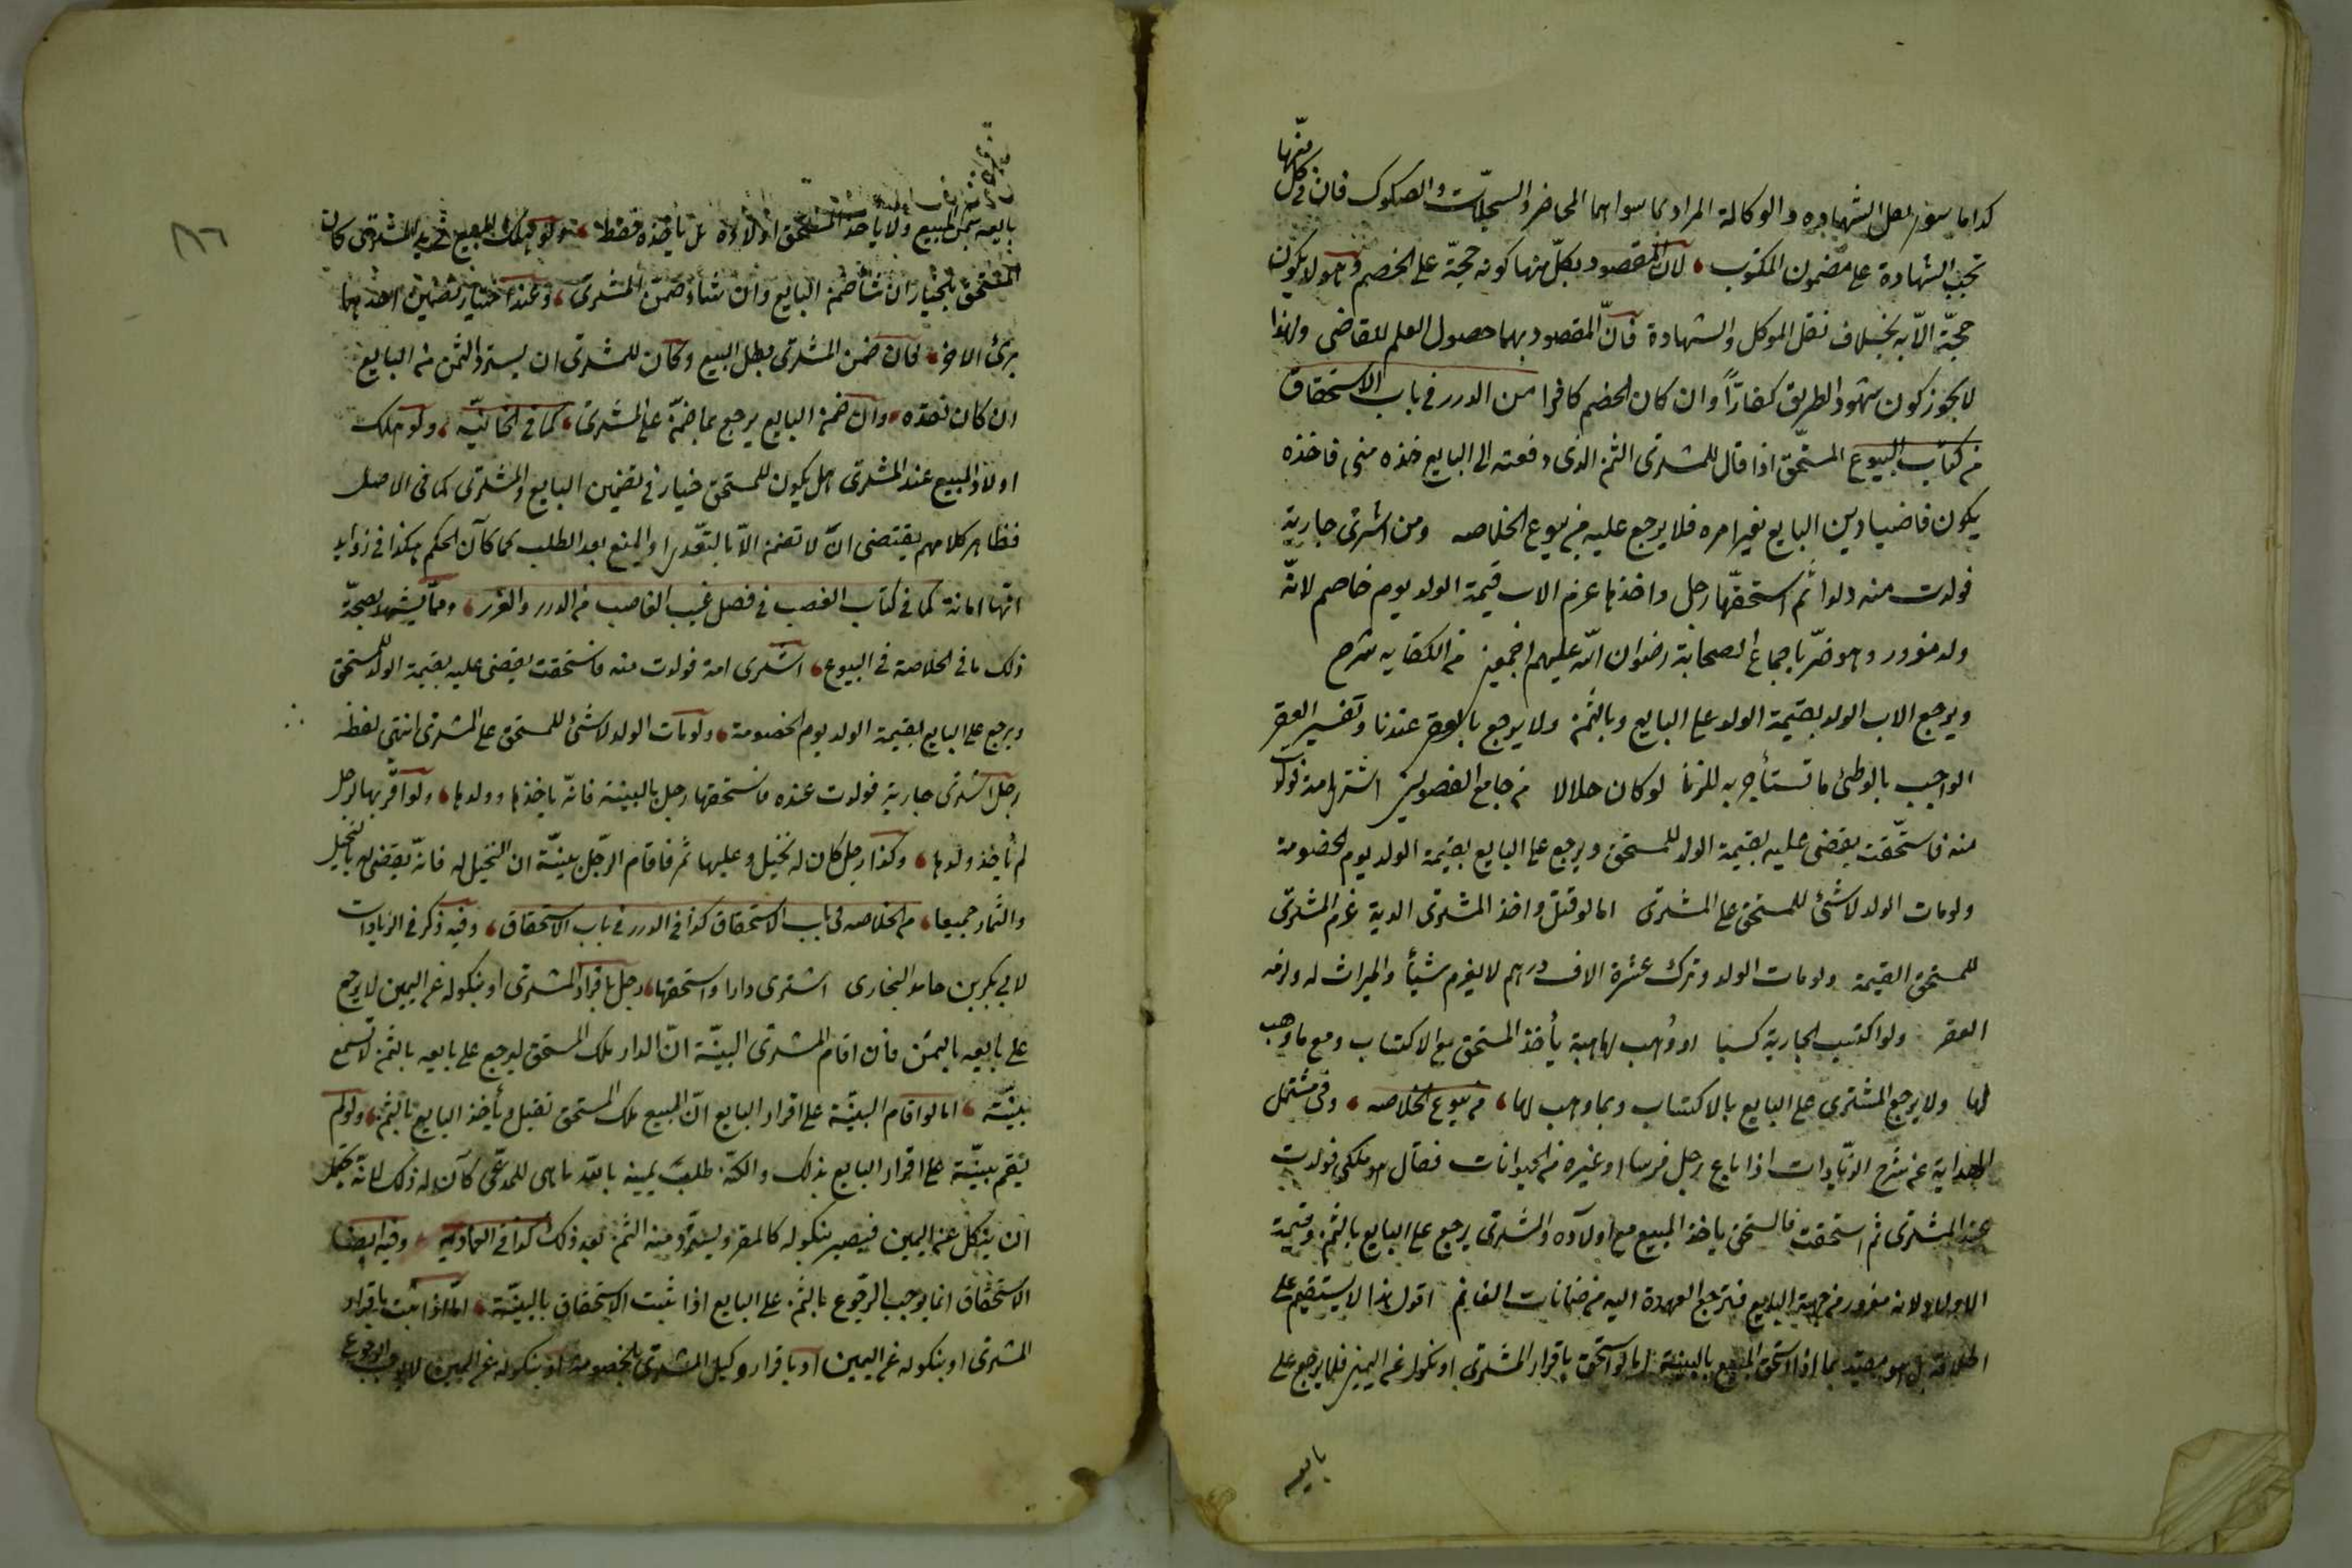 كذا ما سوى نقل الشهادة والوكالة المراد بما سواهما المحاضر والسجلّات والصكوك فان فى كل منها
تجب الشهادة على مضمون المكتوب لان المقصود بكلّ منها كونه حجّة على الخصم وهو لا يكون
حجّة الّا به بخلاف نقل الموكل والشهادة فانّ المقصود بهما حصول العلم للقاضى ولهذا
لا يجوز كون شهود الطريق كفارًا وان كان الخصم كافرا من الدرر فى باب الاستحقاق
من كتاب البيوع المستحق اذا قال للمشترى الثمن الذى دفعته الى البايع خذه منى فاخذه
يكون قاضيا دين البايع بغير امره فلا يرجع عليه من بيوع الخلاصه ومن اشترى جارية
فولدت منه ولدا ثم استحقّها رجل واخذها غرم الاب قيمة الولد يوم خاصم لانّه
ولد مغرور وهو حرّ باجماع الصحابة رضوان الله عليهم اجمعين من الكفايه شرح
ويرجع الاب الولد بقيمة الولد على البايع وبالثمن ولا يرجع بالعقر عندنا وتفسير العقر
الواجب بالوطئ ما تستأجر به للزنا لو كان حلالا من جامع الفصولين اشترى امة فولدت
منه فاستحقت يقضى عليه بقيمة الولد للمستحق ويرجع على البايع بقيمة الولد يوم الخصومة
ولو مات الولد لا شئ للمستحق على المشترى اما لو قتل واخذ المشترى الدية غرم المشترى
للمستحق القيمة ولو مات الولد وترك عشرة الاف درهم لا يغرم شيأ والميراث له ولزمه
العقر ولو اكتسب الجارية كسبا او وُهب لها هبة يأخذ المستحق مع الاكتساب ومع ما وهب
لها ولا يرجع المشترى على البايع بالاكتساب وبما وهب لها من بيوع الخلاصه وفى مشتمل
الهداية عن شرح الزيادات اذا باع رجل فرسا او غيره من الحيوانات فقال هو ملكى فولدت
عند المشترى ثم استحقت فالمستحق ياخذ المبيع مع اولاده والمشترى يرجع على البايع بالثمن وقيمة
الاولاد لانه مغرور من جهة البايع فترجع العهدة اليه من ضمانات الغانم اقول هذا لا يستقيم على
اطلاقه بل هو مقيد بما اذا استحق المبيع بالبينة اما لو استحق باقرار المشترى او نكوله عن اليمين فلا يرجع على
بايعه
بايعه بثمن المبيع ولا ياخذ المستحق اولاده بل يأخذه فقط ولو هلك المبيع فى يد المشترى كان
المستحق بالخيار ان شأ ضمن البايع وان شاء ضمن المشترى وعند اختيار تضمين احدهما
برئ الاخر فان ضمن المشترى بطل البيع وكان للمشترى ان يسترد الثمن من البايع
ان كان نقده وان ضمن البايع يرجع بما ضمنه على المشترى كما فى الخانيّة ولو هلك
اولاد المبيع عند المشترى هل يكون للمستحق خيار فى تضمين البايع والمشترى كما فى الاصل
فظاهر كلامهم يقتضى انّ لا تضمن الّا بالتعدى او المنع بعد الطلب كما كان الحكم هكذا فى زوايد
انها امانة كما فى كتاب الغصب فى فصل غيب الغاصب من الدرر والغرر وممّا يشهد بصحّة
ذلك ما فى الخلاصة فى البيوع اشترى امة فولدت منه فاستحقت يقضى عليه بقيمة الولد للمستحق
ويرجع على البايع بقيمة الولد يوم الخصومة ولو مات الولد لا شئ للمستحق على المشترى انتهى لفظه
رجل اشترى جارية فولدت عنده فاستحقها رجل بالبينة فانّه ياخذها وولدها ولو اقرّ بها لرجل
لم يأخذ ولدها وكذا رجل كان له نخيل وعليها ثمر فاقام الرجل بيّنة ان النخيل له فانّه يقضى له بالنخيل
والثمار جميعا من الخلاصه فى باب الاستحقاق كذا فى الدرر فى باب الاستحقاق وفيه ذكر فى الزيادات
لابى بكر بن حامد البخارى اشترى دارا واستحقها رجل باقرار المشترى او بنكوله عن اليمين لا يرجع
على بايعه بالثمن فان اقام المشترى البيّنة انّ الدار ملك المستحق ليرجع على بايعه بالثمن لا تسمع
بيّنته اما لو اقام البيّنة على اقرار البايع انّ المبيع ملك المستحق تقبل ويأخذ البايع بالثمن ولو لم
يقم بيّنة على اقرار البايع بذلك ولكنّه طلب يمينه بالله ما هى للمدعى كان له ذلك لانّه يحتمل
ان ينكل عن اليمين فيصير بنكوله كالمقر ويسترد منه الثمن بعد ذلك كذا فى العماديه وفيه ايضا
الاستحقاق انما يوجب الرجوع بالثمن على البايع اذا ثبت الاستحقاق بالبيّنة امّا اذا ثبت باقرار
المشترى او بنكوله عن اليمين او باقرار وكيل المشترى بالخصومة او بنكوله عن اليمين لا يوجب الرجوع